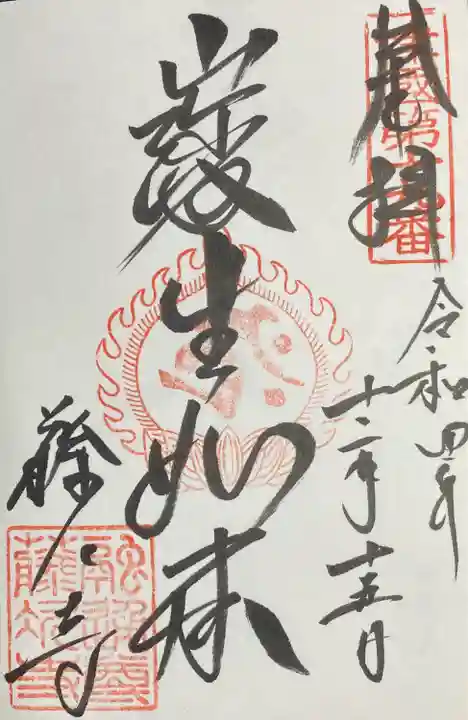 奉拝
令和四年
十二月十五日
寳生如来
藤次寺